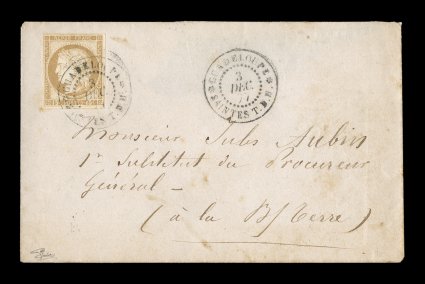 GUADELOUPE
3
DEC.
77
SAINTES T.D.H.
Monsieur Jules Aubin
1er Substitut du Procureur
Général -
(à la B/Terre)